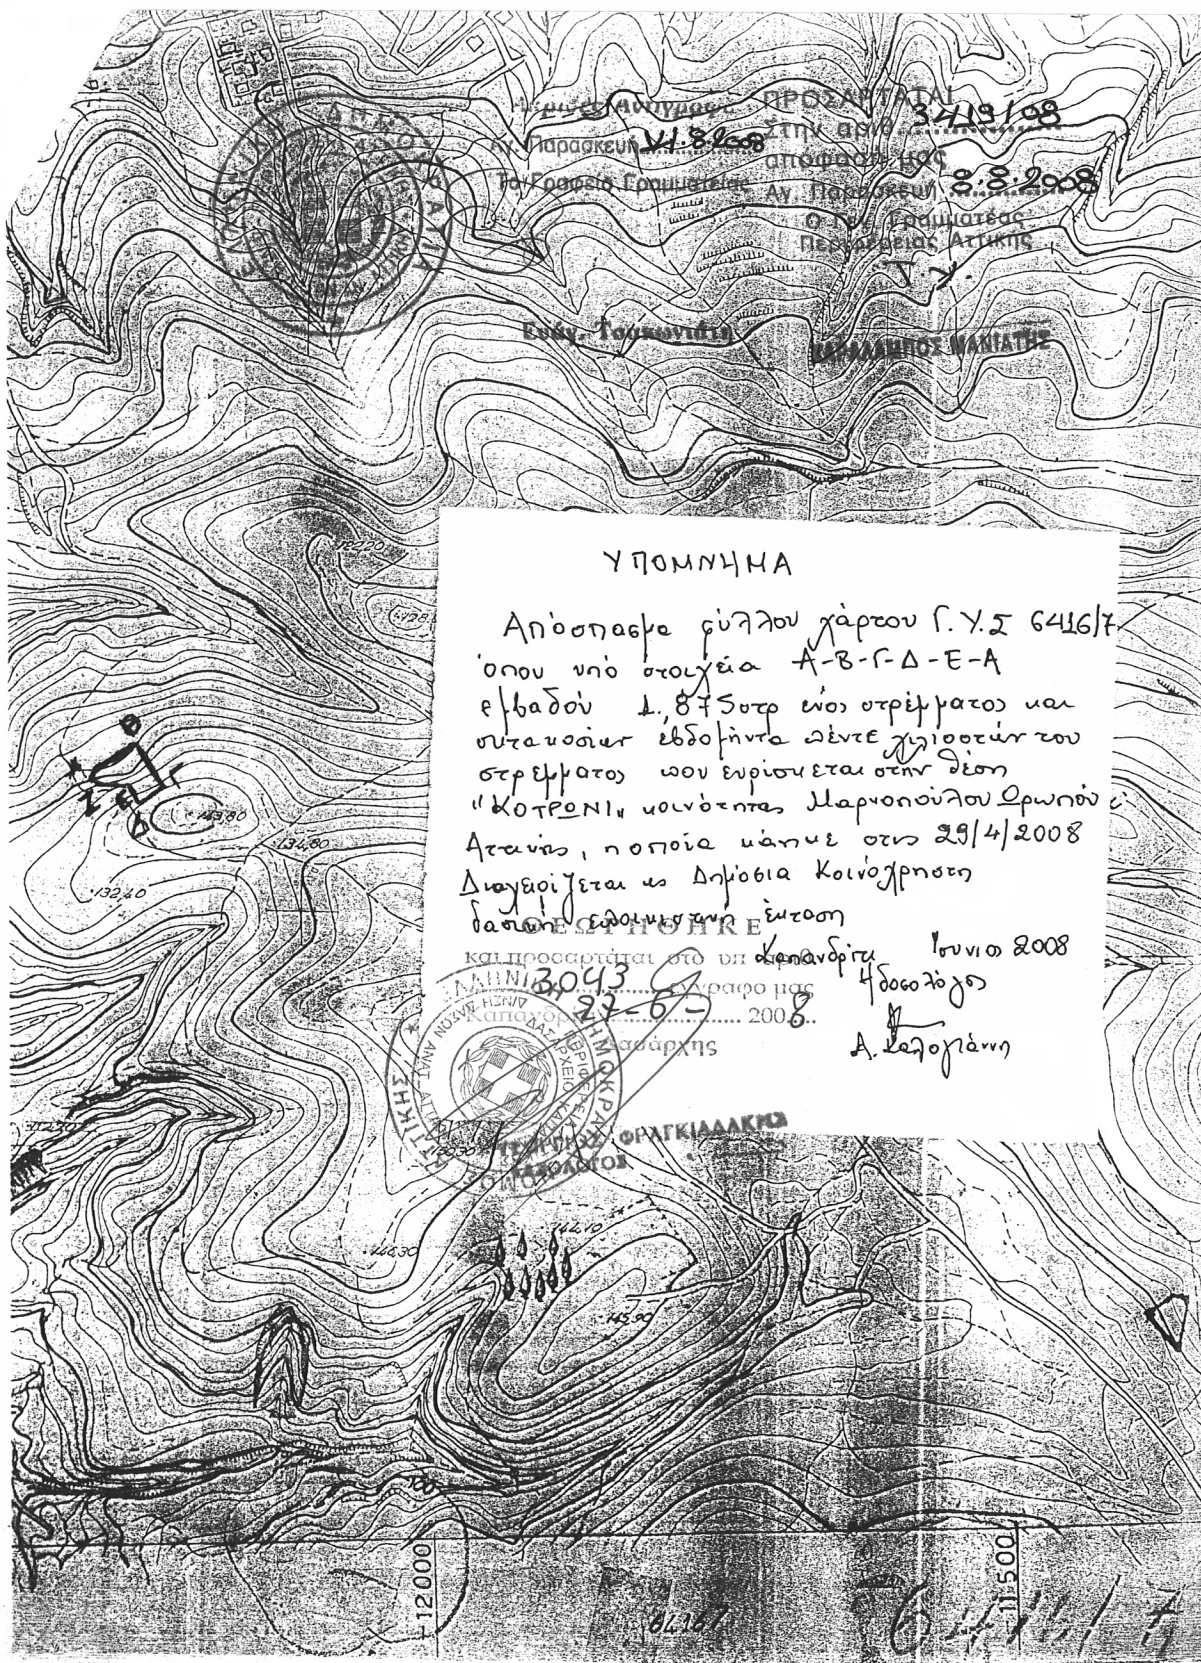 Ακριβές Αντίγραφο
Αγ. Παρασκευή 11.8.2008
Το Γραφείο Γραμματείας
Ευάγ. Τσακωνιάτη
ΠΡΟΣΑΡΤΑΤΑΙ
Στην αριθ. 3419/08
απόφαση μας
Αγ. Παρασκευή 8.8.2008
Ο Γεν. Γραμματέας
Περιφέρειας Αττικής
ΧΑΡΑΛΑΜΠΟΣ ΜΑΝΙΑΤΗΣ
122,20
ΥΠΟΜΝΗΜΑ
Απόσπασμα φύλλου χάρτου Γ.Υ.Σ 6416/7
όπου υπό στοιχεία Α-Β-Γ-Δ-Ε-Α
εμβαδού 1,875στρ ενός στρέμματος και
οκτακοσίων εβδομήντα πέντε χιλιοστών του
στρέμματος που ευρίσκεται στην θέση
"ΚΟΤΡΩΝΙ" κοινότητας Μαρκοπούλου Ωρωπού
Αττικής, η οποία κάηκε στις 29/4/2008
Διαχειρίζεται ως Δημόσια Κοινόχρηστη
δασική έκταση
Καπανδρίτι Ιούνιος 2008
Η δασολόγος
Α. Καλογιάννη
ΘΕΩΡΗΘΗΚΕ
και προσαρτάται στο υπ' αριθ.
3043 έγγραφο μας
Καπανδρίτι 27-6-2008
Ο Δασάρχης
ΓΕΩΡΓΙΟΣ ΦΡΑΓΚΙΑΔΑΚΗΣ
ΔΑΣΟΛΟΓΟΣ
149,80
134,80
132,40
144,10
146,30
145,90
100
-12000
64167
-11500
6416/7